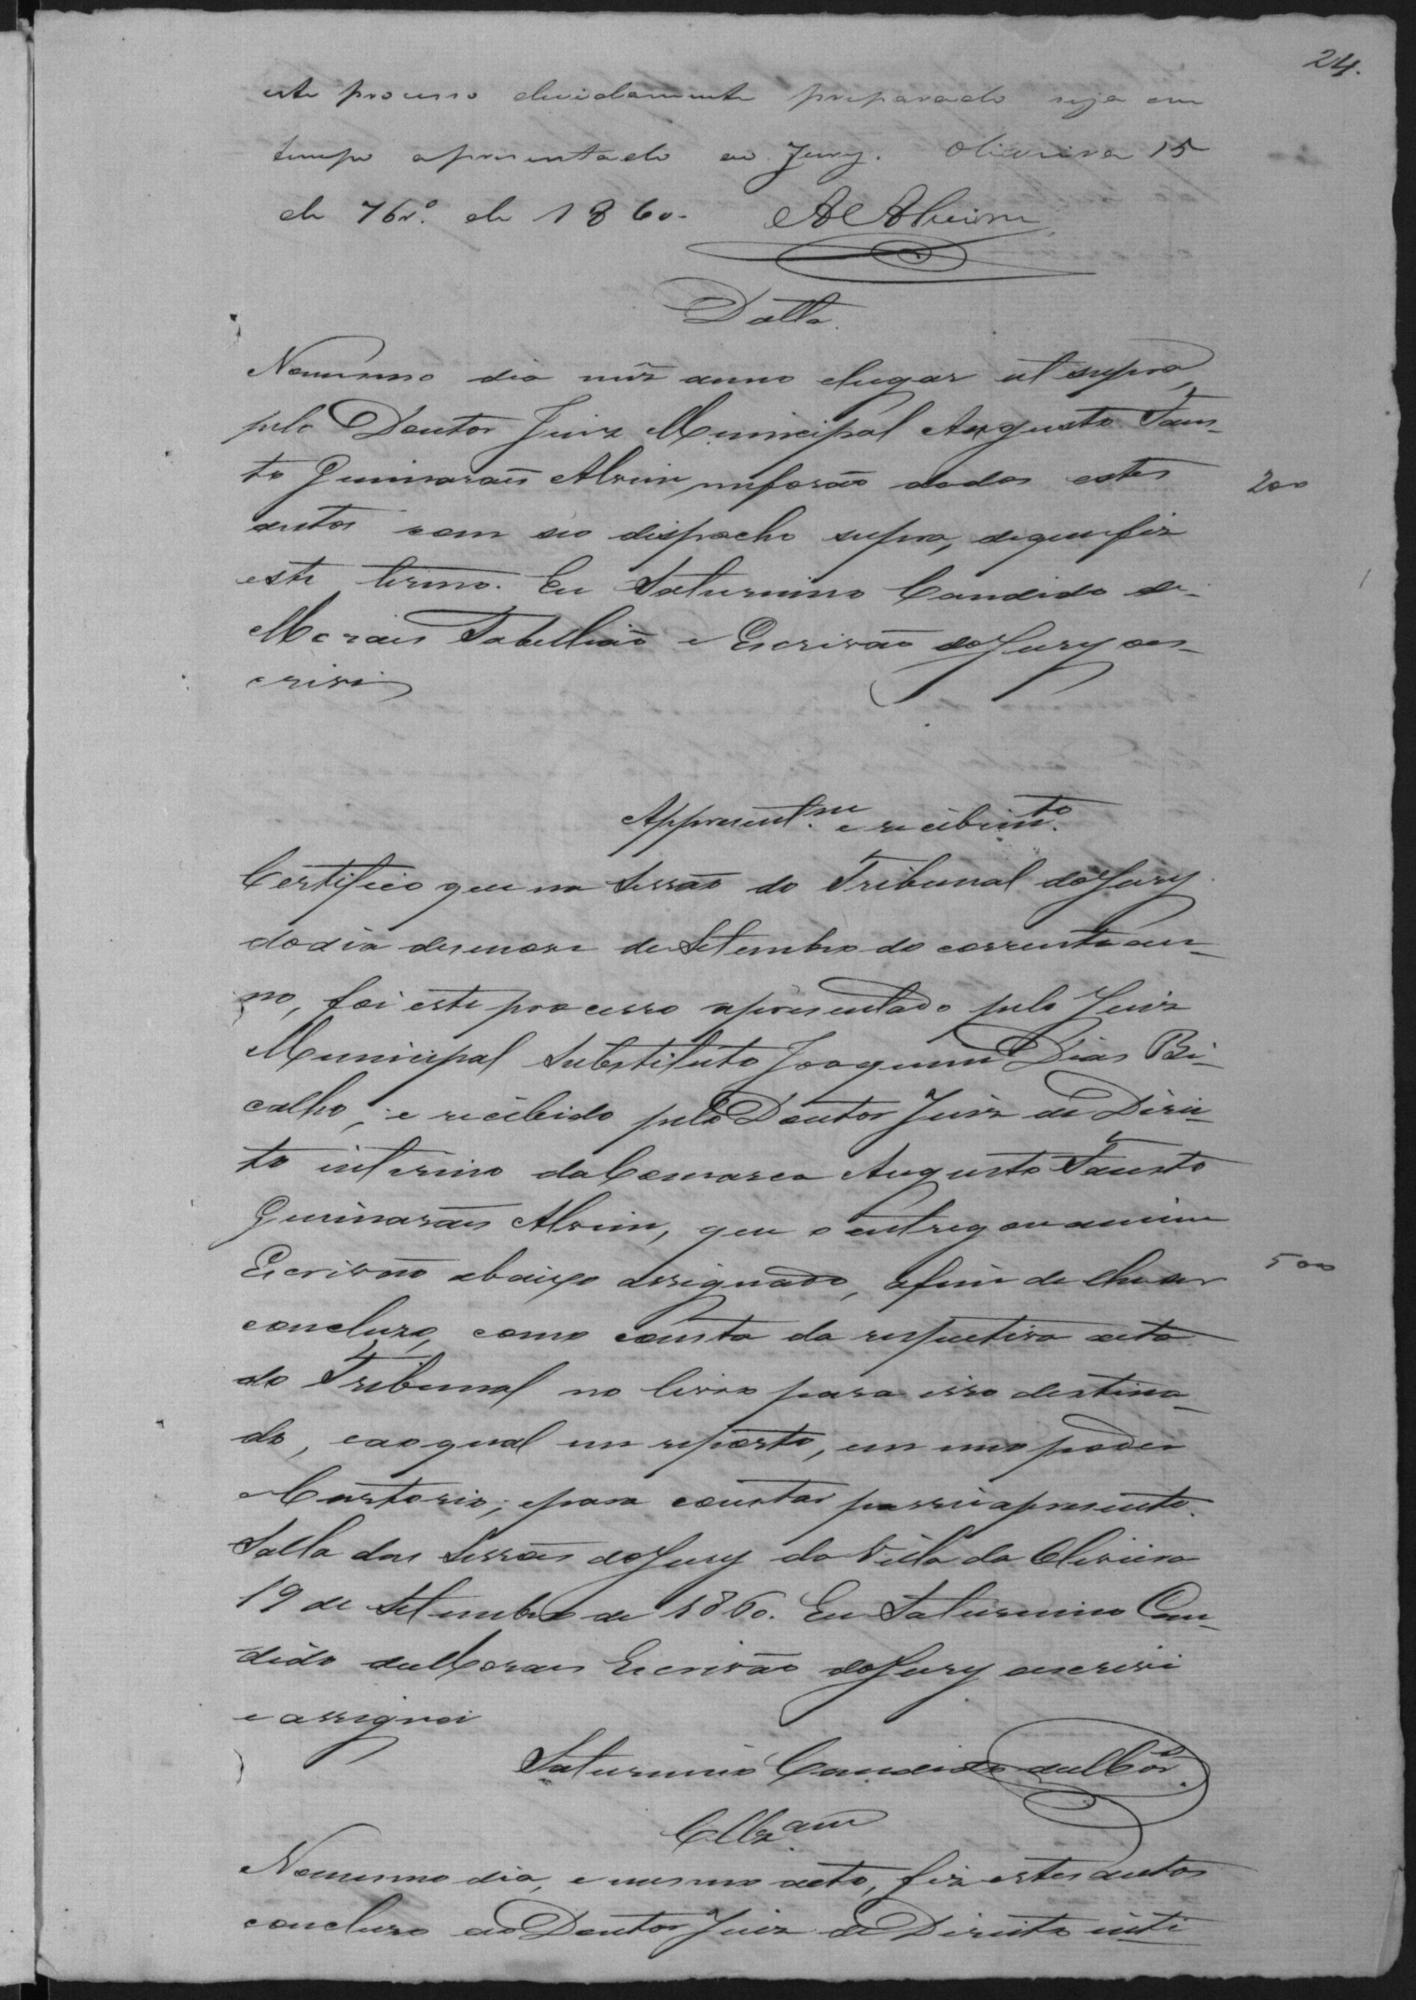 24.
este processo devidamente preparado seja em
tempo apresentado ao Jury. Oliveira 15
de 7br.º de 1860.
AAlvim
Datta.
Nomesmo dia mêz anno elugar ut supra,
pelo Doutor Juiz Municipal Augusto Faus-
to Guimarães Alvim, meforão dados estes
200
autos com seo dispacho supra, dequefiz
este termo. Eu Saturnino Candido de
Morais Tabellião e Escrivão doJury oes-
crivi
Appresent.me e recibim.to
Certifico que na Sessão do Tribunal doJury
dodia desenove deSetembro do corrente an-
no, foi este processo apresentado pelo Juiz
Municipal Substituto Joaquim Dias Bi-
calho, e recibido pelo Doutor Juiz de Direi-
to interino daComarca Augusto Fausto
Guimarães Alvim, que o entregou amim
Escrivão abaixo assignado, afim de lheser
500
concluzo, como consta da respectiva acta
do Tribunal no livro para isso destina-
do, eaoqual me reporto, em meo poder
eCartorio; epara constar passei apresente.
Salla das Sessões doJury da Villa da Oliveira
19 de Setembro de 1860. Eu Saturnino Can-
dido deMorais Escrivão doJury oescrivi
e assignei
Saturnino Candido deMor.s
Cllz.am
Nomesmo dia, e mesmo acto, fiz estes autos
concluzo ao Doutor Juiz de Direito inte